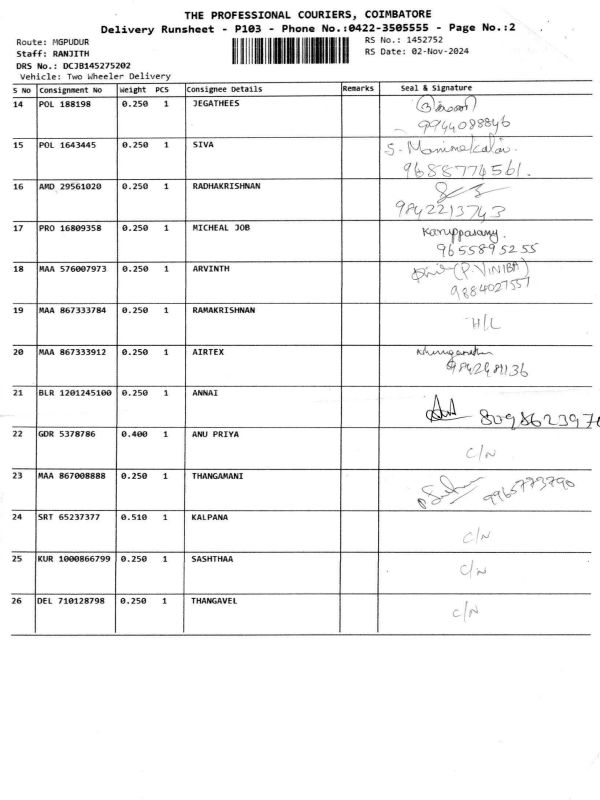 THE PROFESSIONAL COURIERS, COIMBATORE
Delivery Runsheet - P103 - Phone No.:0422-3505555 - Page No.:2
Route: MGPUDUR RS No.: 1452752
Staff: RANJITH RS Date: 02-Nov-2024
DRS No.: DCJB145275202
Vehicle: Two Wheeler Delivery
S No Consignment No Weight PCS Consignee Details Remarks Seal & Signature
14 POL 188198 0.250 1 JEGATHEES
9944088846
15 POL 1643445 0.250 1 SIVA S. Manimekalai.
9688774561.
16 AMD 29561020 0.250 1 RADHAKRISHNAN
9842213743
17 PRO 16809358 0.250 1 MICHEAL JOB Karuppasamy.
9655895255
18 MAA 576007973 0.250 1 ARVINTH (P. VINIBA)
9884027557
19 MAA 867333784 0.250 1 RAMAKRISHNAN
H/L
20 MAA 867333912 0.250 1 AIRTEX
21 BLR 1201245100 0.250 1 ANNAI
22 GDR 5378786 0.400 1 ANU PRIYA
C/N
23 MAA 867008888 0.250 1 THANGAMANI
9965773790
24 SRT 65237377 0.510 1 KALPANA
C/N
25 KUR 1000866799 0.250 1 SASHTHAA
C/N
26 DEL 710128798 0.250 1 THANGAVEL
C/N